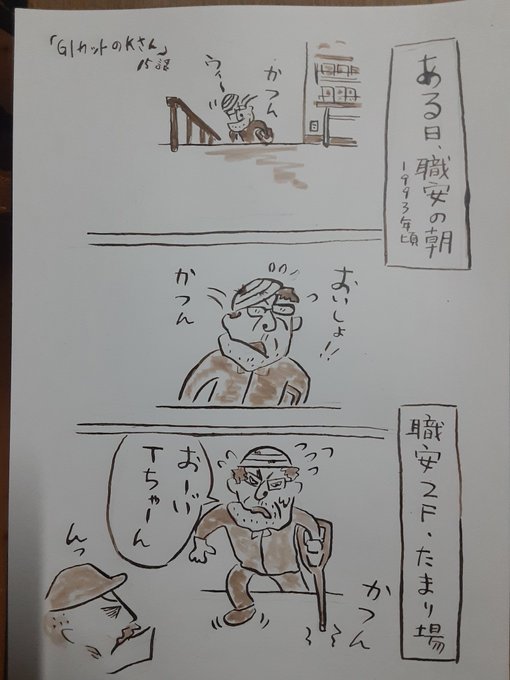 「GIカットのKさん」
15話
ある日、職安の朝
1993年頃
かつん
ウィーッ
おいしょ!!
かつん
職安2F・たまり場
おーい
Tちゃーん
かつん
んっ